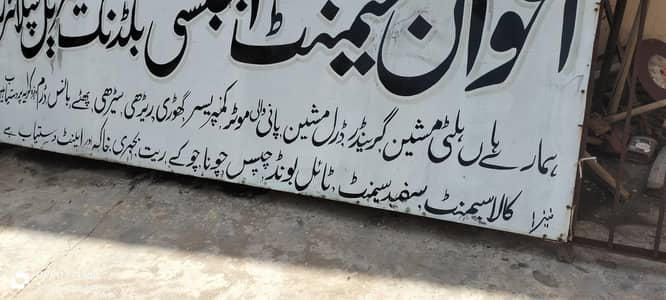 اخوان سیمنٹ ایجنسی بلڈنگ مٹریل سپلائر
ہمارے ہاں ہلٹی مشین گرینڈر ڈرل مشین پانی والی موٹر کمپریسر گھوڑی ریڑھی سیڑھی پھٹے بانس ڈرم کرایہ پر دستیاب ہیں
نیز کالا سیمنٹ سفید سیمنٹ، ٹائل بونڈ چپس چونا چوکے ریت بجری خاکہ اور اینٹ دستیاب ہے